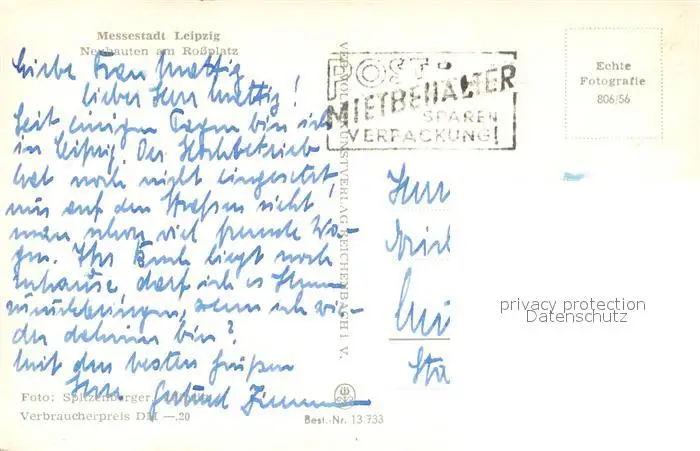 Messestadt Leipzig
Neubauten am Roßplatz
Liebe Frau Mattig
lieber Herr Mattig!
Seit einigen Tagen bin ich
in Leipzig. Der Hochbetrieb
hat noch nicht eingesetzt,
nur auf den Straßen sieht
man schon viel fremde Wa-
gen. Ihr Buch liegt noch
zuhause, darf ich es Ihnen
zurückbringen, wenn ich wie-
der daheim bin?
Mit den besten Grüßen
Ihre Gertrud
Foto: Spitzenberger,
Verbraucherpreis DM —.20
Best.-Nr. 13 733
VEB VOLKSKUNSTVERLAG REICHENBACH I. V.
POST-
MIETBEHÄLTER
SPAREN
VERPACKUNG!
Echte
Fotografie
806/56
Herr
privacy protection
Datenschutz